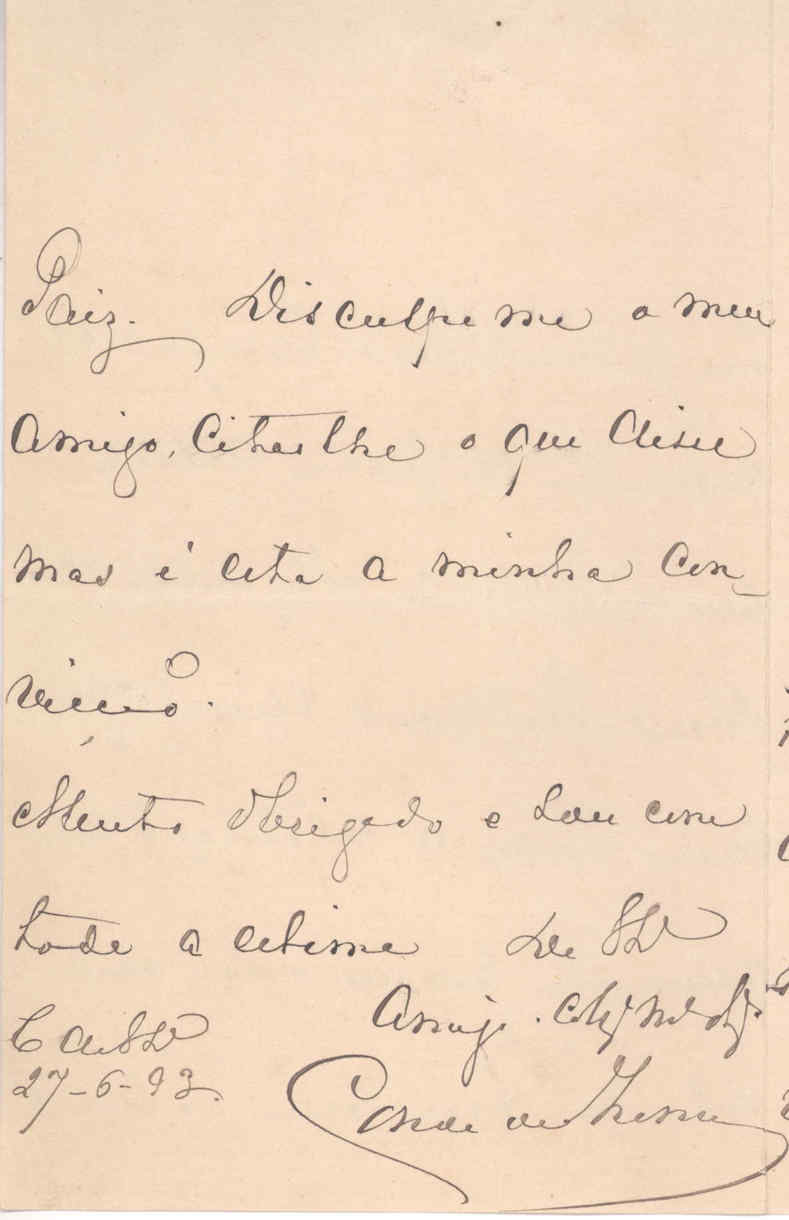 Paiz. Disculpe me o meu
Amigo, Citar lhe o que disse
mas é esta a minha Con-
vicção.
Muito obrigado e Sou com
toda a estima De VExª
Amigo
C de VExª
27-6-93.
Conde de